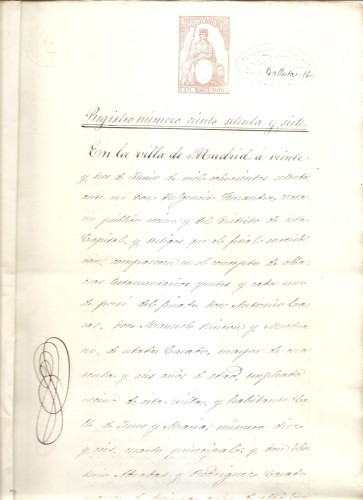 Balluta. 16
Registro número ciento setenta y siete.
En la villa de Madrid á veinte
y tres de Junio de mil ochocientos setenta
ante mi don Fulgencio Fernandez, nota-
rio público vecino y del Distrito de esta
Capital, y testigos que al final se escribi-
rán, comparecen en el concepto de alba-
ceas testamentarios juntos y cada uno
de por sí del finado don Antonio Ca-
sas, don Manuel Rincon y
no, de estado Casado, mayor de cua-
renta y seis años de edad, empleado
vecino de esta villa, y habitante Ca-
lle de Jesus y María, número diez
y seis, cuarto principal; y don
Abradas y Rodriguez, Casado